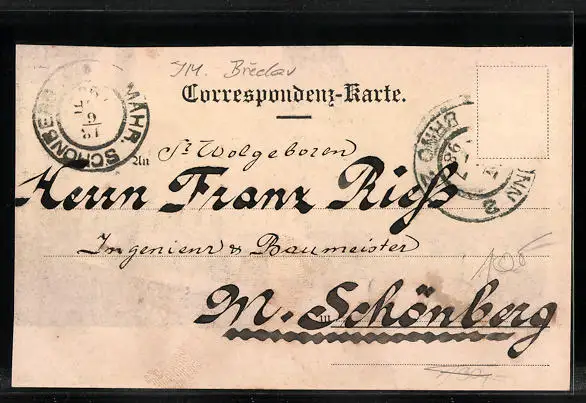 JM. Břeclav
Correspondenz-Karte.
MÄHR. SCHÖNBERG
An Sr Wolgeboren
Herrn Franz Rieß
Ingenieur & Baumeister
in M. Schönberg